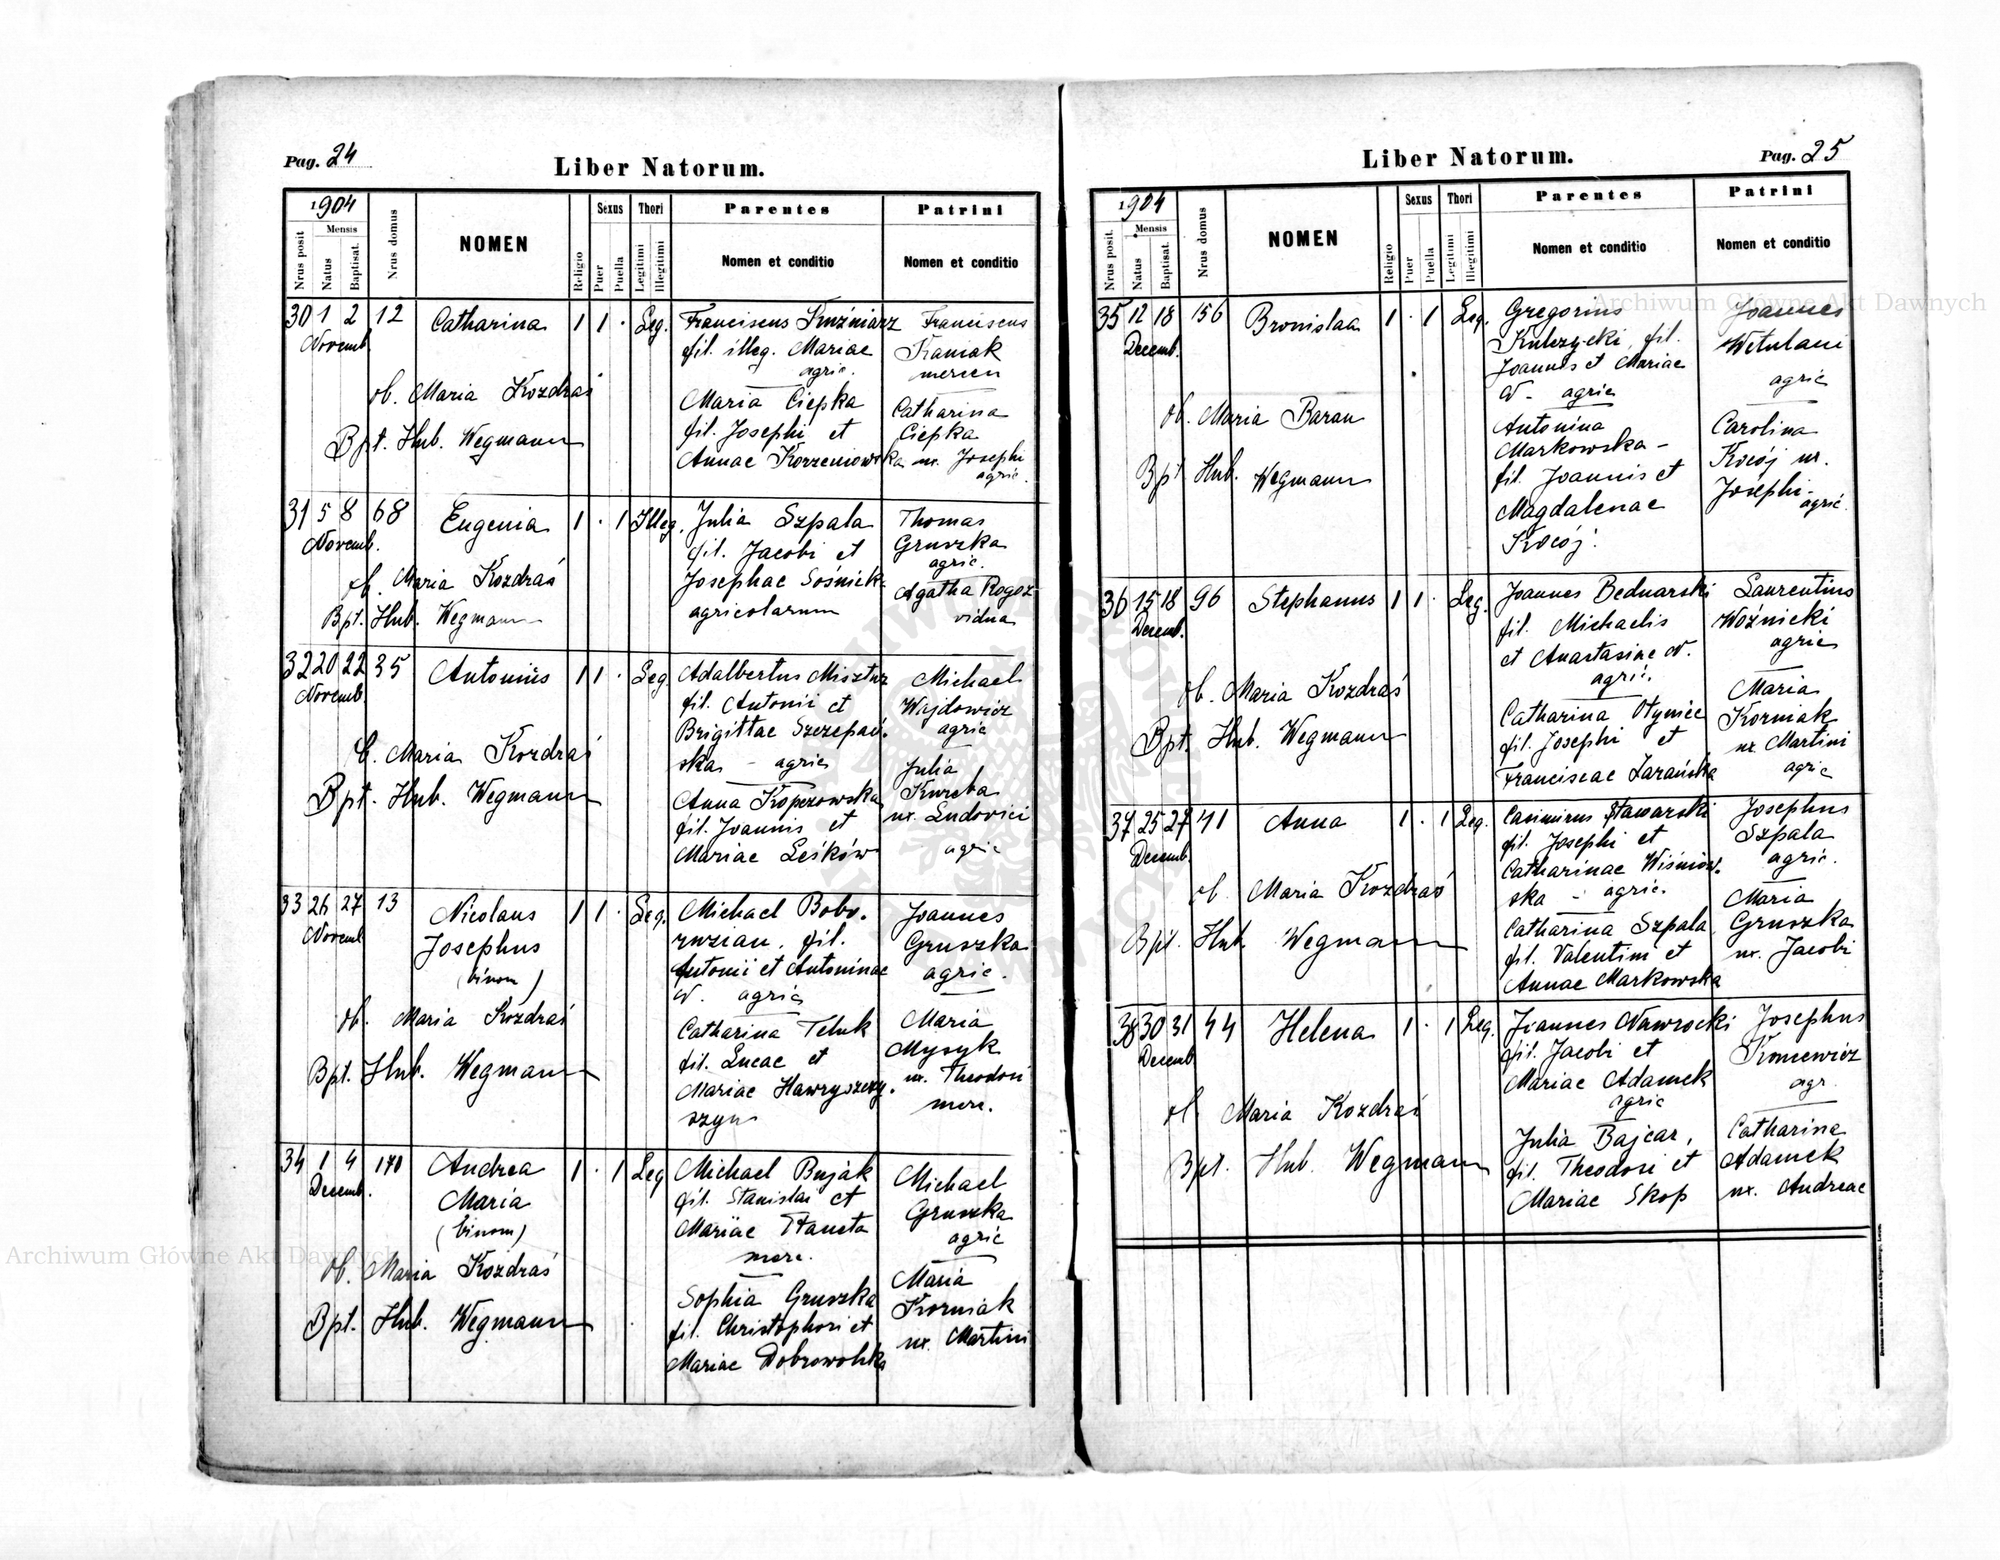 Pag. 24
Liber Natorum.
1904
Mensis
Nrus posit.
Natus
Baptisat.
Nrus domus
NOMEN
Religio
Sexus
Puer
Puella
Thori
Legitimi
Illegitimi
Parentes
Nomen et conditio
Patrini
Nomen et conditio
30 1 2 12 Catharina 1 1 · Leg.
Novemb.
ob. Maria Kozdraś
Bpt. Hub. Wegmann
Franciscus Kuźniarz
fil. illeg. Mariae
agric.
Maria Ciepka
fil. Josephi et
Annae Korzeniowska
Franciscus
Kaniak
mercen
Catharina
Ciepka
ux. Josephi
agric.
31 5 8 68 Eugenia 1 · 1 Illeg.
Novemb.
ob. Maria Kozdraś
Bpt. Hub. Wegmann
Julia Szpala
fil. Jacobi et
Josephae Sośnick.
agricolarum
Thomas
Gruszka
agric.
Agatha Rogoz
vidua
32 20 22 35 Antonius 1 1 · Leg.
Novemb.
Maria Kozdraś
Bpt. Hub. Wegmann
Adalbertus Misztur
fil. Antonii et
Brigittae Szczepań-
ska - agric
Anna Kopczowska
fil. Joannis et
Mariae Leśków
Michael
Wajdowicz
agric
Julia
Kureba
ux. Ludovici
agric
33 26 27 13 Nicolaus 1 1 · Leg.
Novemb.
Josephus
(binom)
ob. Maria Kozdraś
Bpt. Hub. Wegmann
Michael Bobo-
fil.
Antonii et Antoninae
W. agric
Catharina Teluk
fil. Lucae et
Mariae Hawryszczy-
szyn
Joannes
Gruszka
agric.
Maria
Mysyk
ux. Theodori
merc.
34 1 4 170 Andrea 1 · 1 Leg
Decemb.
Maria
(binom)
ob. Maria Kozdraś
Bpt. Hub. Wegmann
Michael Bujak
fil. Stanislai et
Mariae Haneta
merc.
Sophia Gruszka
fil. Christophori et
Mariae Dobrowolska
Michael
Gruszka
agric
Maria
Korniak
ux. Martini
Liber Natorum.
Pag. 25
1904
Mensis
Nrus posit.
Natus
Baptisat.
Nrus domus
NOMEN
Religio
Sexus
Puer
Puella
Thori
Legitimi
Illegitimi
Parentes
Nomen et conditio
Patrini
Nomen et conditio
35 12 18 156 Bronislaa 1 · 1 Leg.
Decemb.
ob. Maria Baran
Bpt Hub. Wegmann
Gregorius
Kulczycki, fil.
Joannis et Mariae
W - agric
Antonina
Markowska -
fil. Joannis et
Magdalenae
Kocój.
Joannes
Wetulani
agric
Carolina
Kocój ux.
Josephi-
agric
36 15 18 96 Stephanus 1 1 · Leg.
Decemb.
ob. Maria Kozdraś
Bpt. Hub. Wegmann
Joannes Bednarski
fil. Michaelis
et Anastasiae W.
agric.
Catharina Otyniec
fil. Josephi et
Franciscae Zarańska
Laurentius
Woźnicki
agric
Maria
Korniak
ux Martini
agric
37 25 27 71 Anna 1 · 1 Leg.
Decemb.
ob. Maria Kozdraś
Bpt. Hub. Wegmann
Casimirus Stawarski
fil. Josephi et
Catharinae Wiśniow-
ska - agric.
Catharina Szpala
fil. Valentini et
Annae Markowska
Josephus
Szpala
agric.
Maria
Gruszka
ux. Jacobi
38 30 31 44 Helena 1 · 1 Leg.
Decemb.
ob. Maria Kozdraś
Bpt. Hub. Wegmann
Joannes Nawrocki
fil. Jacobi et
Mariae Adamek
agric
Julia Bajcar,
fil. Theodori et
Mariae Skop
Josephus
Koniewicz
agr.
Catharina
Adamek
ux. Andreae
Archiwum Główne Akt Dawnych
Archiwum Główne Akt Dawnych